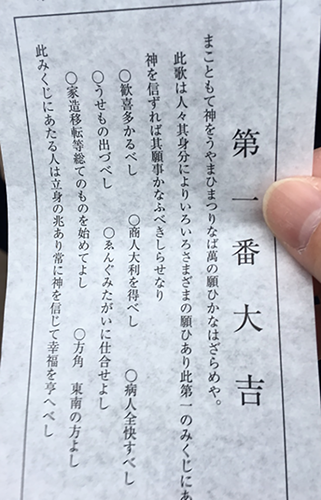 第一番大吉
まこともて神をうやまひまつりなば萬の願ひかなはざらめや。
此歌は人々其身分によりいろいろさまざまの願ひあり此第一のみくじにあ
神を信ずれば其願事かなふべきしらせなり
〇歓喜多かるべし 〇商人大利を得べし 〇病人全快すべし
〇うせもの出づべし 〇ゑんぐみたがいに仕合せよし
〇家造移転等総てのものを始めてよし 〇方角 東南の方よし
此みくじにあたる人は立身の兆あり常に神を信じて幸福を亨へべし